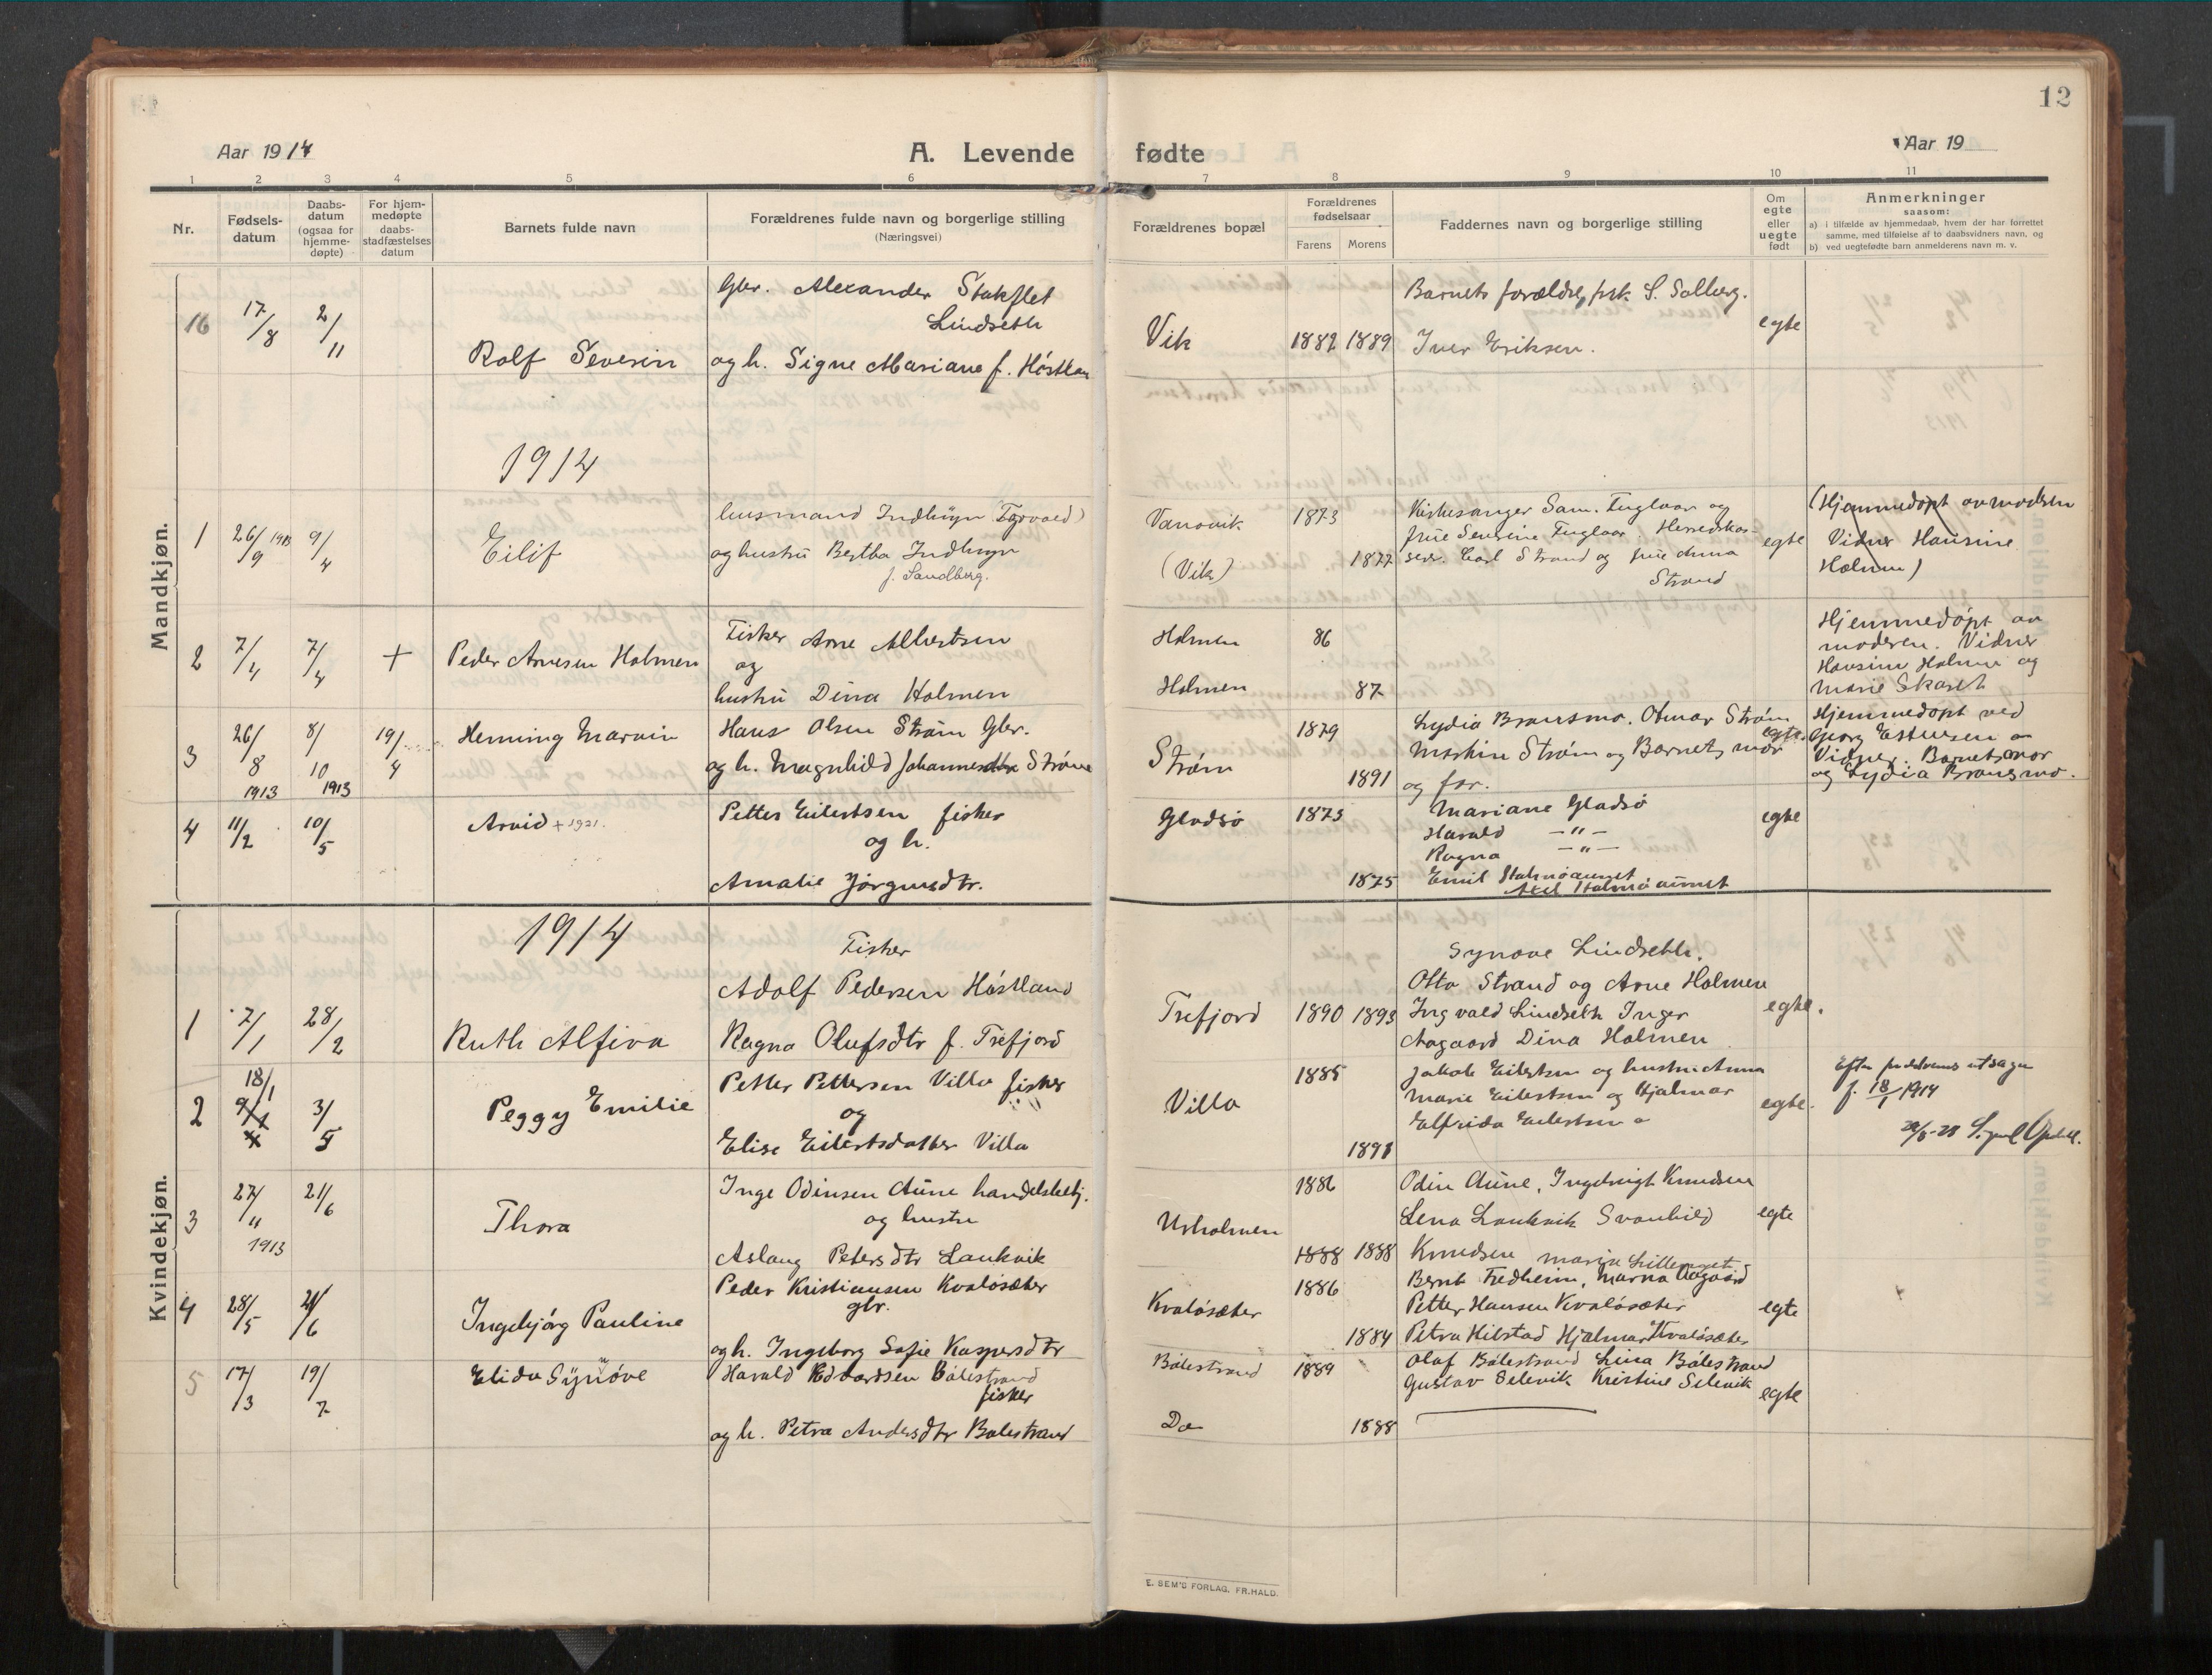 12
Aar 1914
A. Levende fødte
Aar 19
1 2 3 4 5 6 7 8 9 10 11
Nr.
Fødsels-
datum
Daabs-
datum
(ogsaa for
hjemme-
døpte)
For hjem-
medøpte
daabs-
stadfæstelses
datum
Barnets fulde navn
Forældrenes fulde navn og borgerlige stilling
(Næringsvei)
Forældrenes bopæl
Forældrenes
fødselsaar
Farens Morens
Faddernes navn og borgerlige stilling
Om
egte
eller
uegte
født
Anmerkninger
saasom:
a) i tilfælde av hjemmedaab, hvem der har forrettet
samme, med tilføielse af to daabsvidners navn, og
b) ved uegtefødte barn anmelderens navn m. v.
Mandkjøn.
16 17/8 2/11 Rolf Severin
Gbr. Alexander Stakflet
Lindseth
og h. Signe Mariane f. Høstlan
Vik 1882 1889
Barnets forældre, frk. S. Solberg.
Iver Eriksen.
egte
1914
1 26/9 1913 9/4 Eilif
husmand Indhyn (Torvald)
og hustru Bertha Indhyn
f. Sandberg.
Vanovik 1873
(Vik) 1877
Kirkesanger Sam. Fuglaar og
frue Severine Fuglaar. Herredskas-
serer Carl Strand og frue Anna
Strand
egte
(Hjemmedøpt av moderen
Vidner Hansine
Holmen)
2 7/4 7/4 + Peder Arnesen Holmen
Fisker Arne Albertsen
og
hustru Dina Holmen
Holmen 86
Holmen 87
Hjemmedøpt av
moderen. Vidner
Hansine Holmen og
Marie Skaret
3 26/8 1913 8/10 1913 19/4 Henning Marvin
Hans Olsen Strøm Gbr.
og h. Magnhild Johannesdtr Strøm
Strøm 1879
1891
Lydia Bransmo. Otmar Strøm
Strøm og Barnets mor
og far.
egte.
Hjemmedøpt ved
Georg
Vidner. Barnets mor
og Lydia Bransmo.
4 11/2 10/5 Arvid + 1921.
Petter Eilertsen fisker
og h.
Amalie Jørgensdtr.
Gladsø 1873
1875
Mariane Gladsø
Harald — " —
Ragna — " —
Emil Holmøaunet
Axel Holmøaunet
egte
Kvindekjøn.
1914
1 7/1 28/2 Ruth Alfiva
Fisker
Adolf Pedersen Høstland
Ragna Olufsdtr f. Trefjord
Trefjord 1890 1893
Synøve Lindseth.
Otto Strand og Arne Holmen
Ingvald Lindseth Inger
Aagaard Dina Holmen
egte.
2 18/1 3/5 Peggy Emilie
Petter Pettersen Villa fisker
og
Elise Eilertsdatter Villa
Villa 1885
1891
Jakob Eilertsen og hustru Anna
Marie Eilertsen og Hjalmar
Elfrida Eilertsen
egte.
Efter utsagn
f. 18/1 1914
3 27/11 1913 21/6 Thora
Inge Odinsen Aune handelsbetj.
og hustru
Aslaug Petersdtr Laukvik
Urholmen 1886
1888 1888
Odin Aune, Ingebrigt Knudsen
Lena Laukvik Svanhild
Knudsen
egte
4 28/5 21/6 Ingebjørg Pauline
Peder Kristiansen Kvaløsæter
gbr.
og h. Ingeborg Sofie Kaspersdtr
Kvaløsæter 1886
1884
Marie Lillemoet
Bernt Fredheim, Marna Aagaard
Petter Hansen Kvaløsæter
Petra Hilstad Hjalmar Kvaløsæter
egte
5 17/3 19/7 Elida Synøve
Harald Edvardsen Bølestrand
fisker
og h. Petra Andersdtr Bølestrand
Bølestrand 1889
Do 1888
Olaf Bølestrand Lina Bølestrand
Gustav Selevik Kristine Selevik
egte
E. SEM'S FORLAG. FR.HALD.